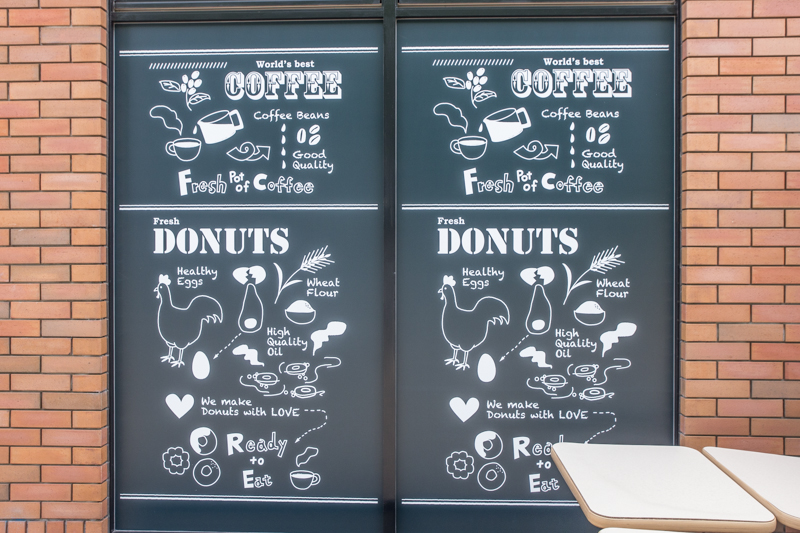 World's best
COFFEE
Coffee Beans
Good
Quality
Fresh Pot of Coffee
Fresh
DONUTS
Healthy
Eggs
Wheat
Flour
High
Quality
Oil
We make
Donuts with LOVE
Ready
to
Eat
World's best
COFFEE
Coffee Beans
Good
Quality
Fresh Pot of Coffee
Fresh
DONUTS
Healthy
Eggs
Wheat
Flour
High
Quality
Oil
We make
Donuts with LOVE
Read
to
Eat